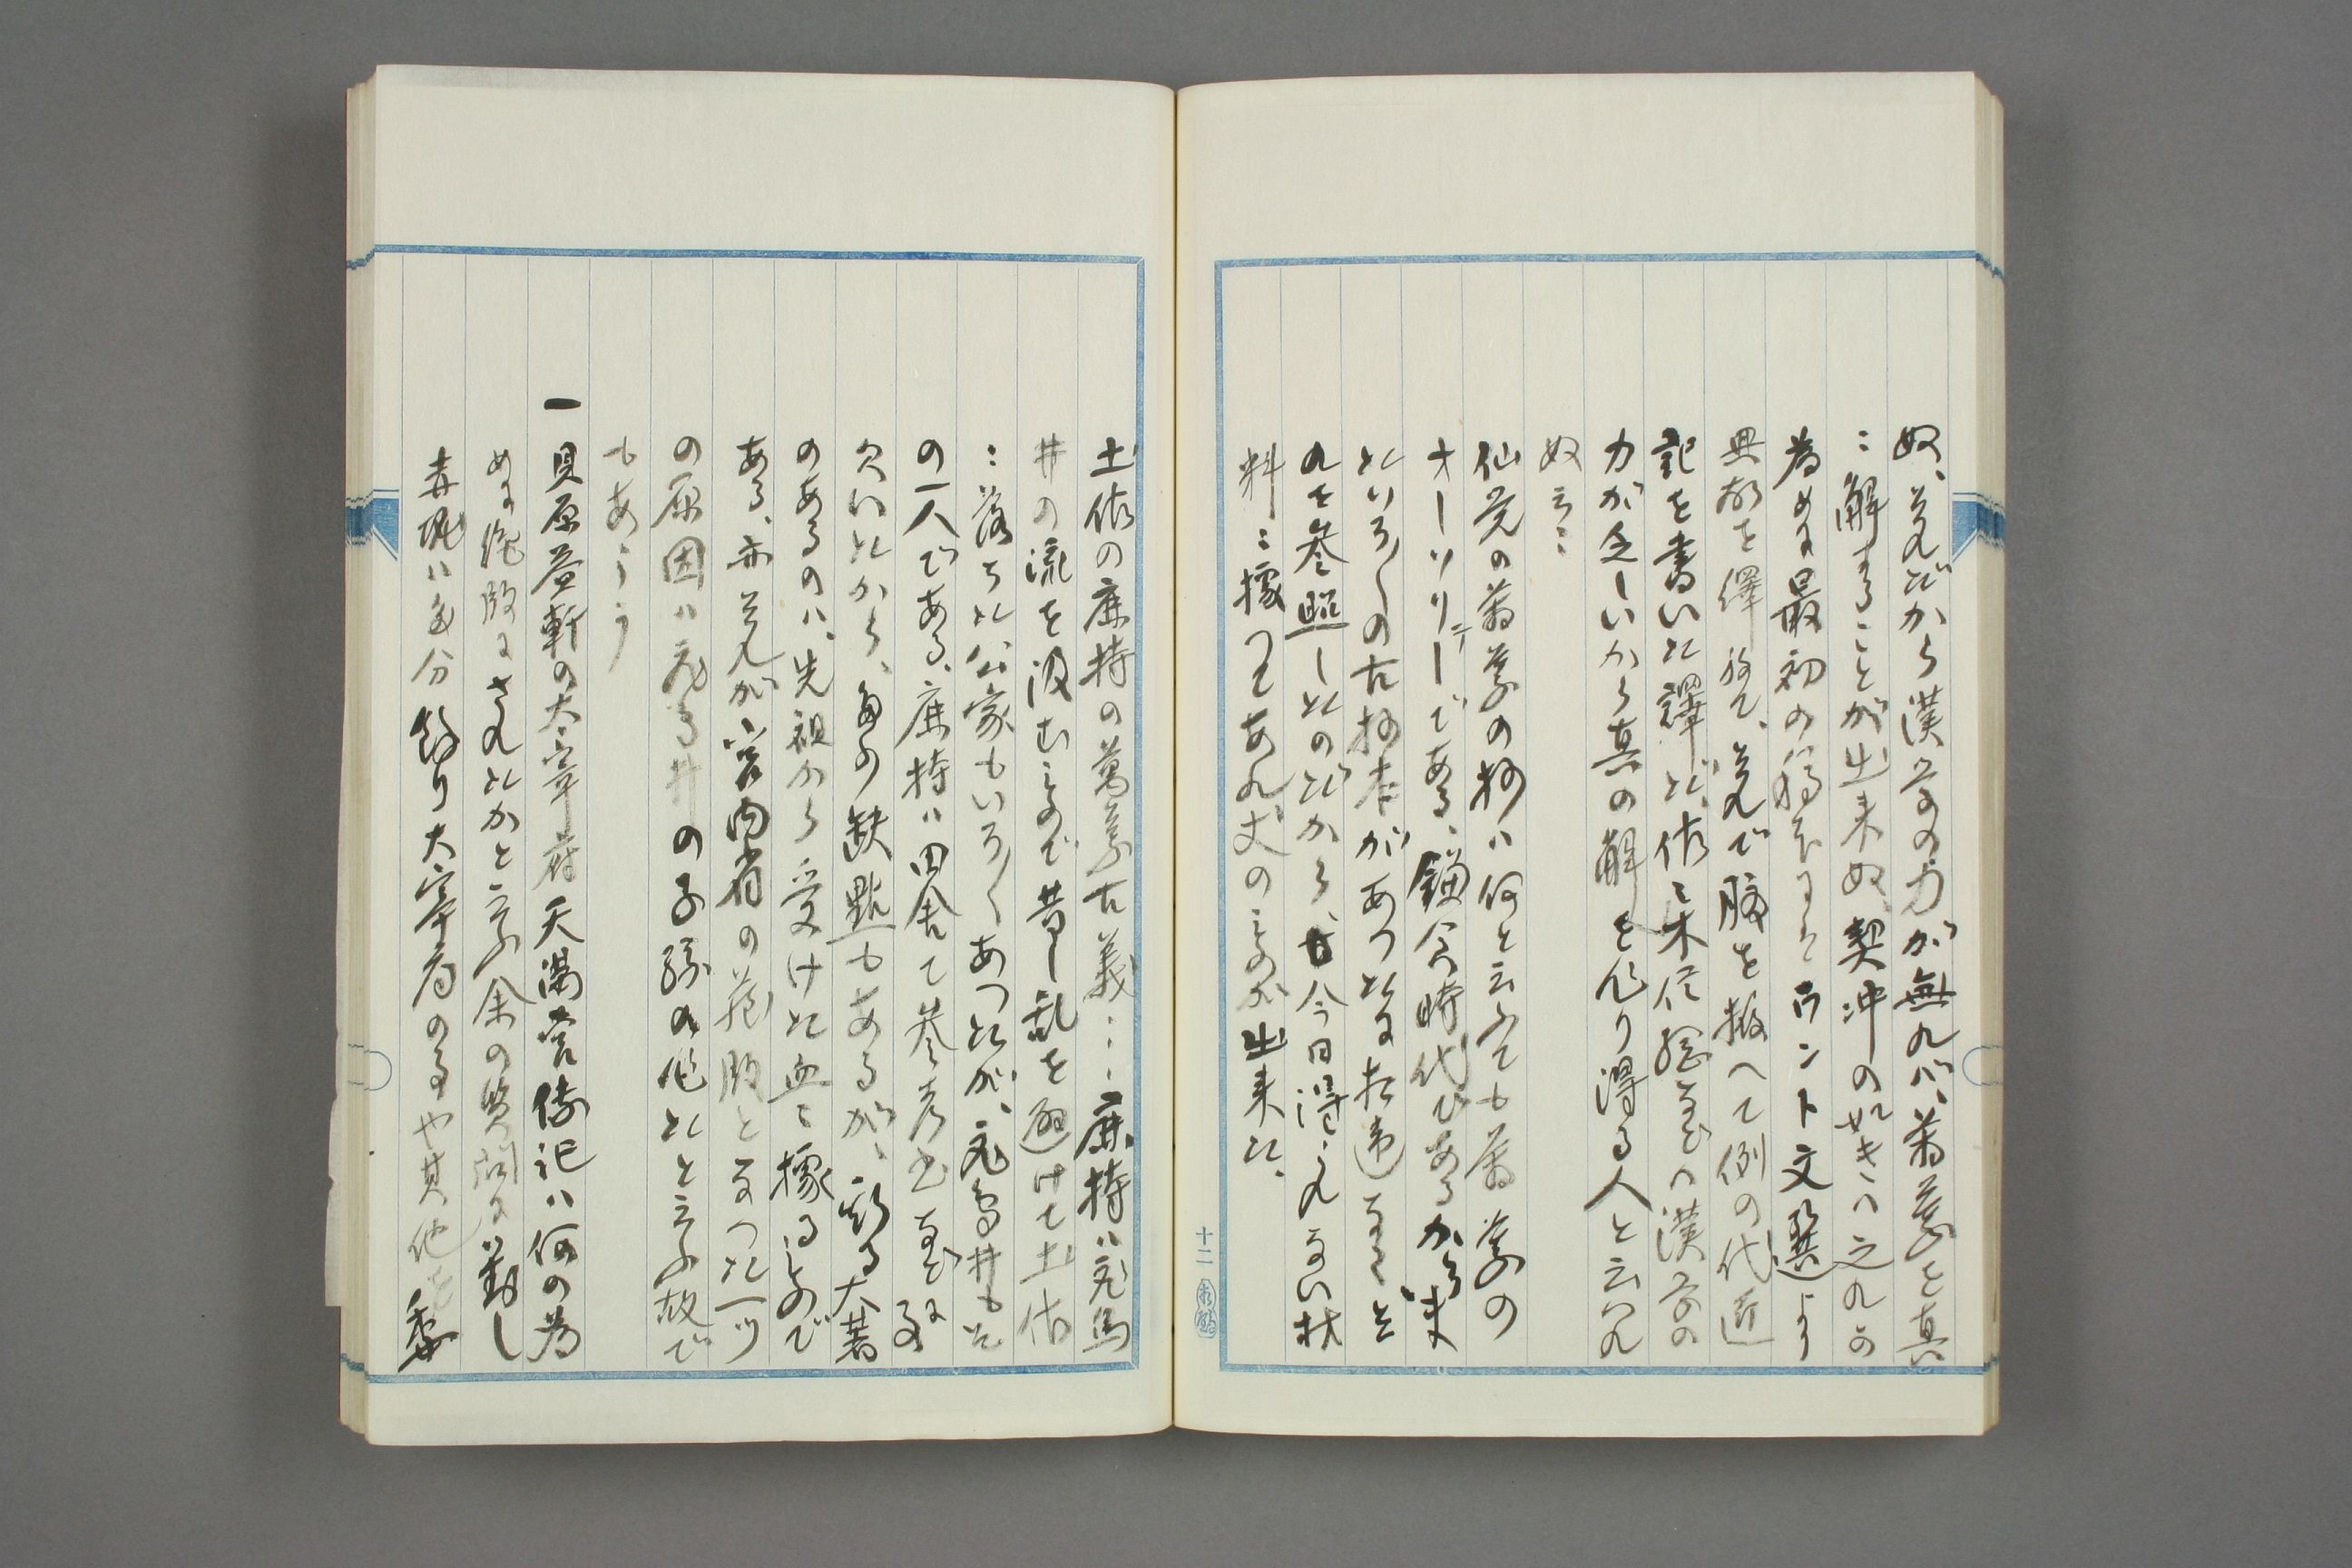 奴、それだから漢学の力が無れバ萬葉を真
ニ解することが出来ぬ契冲の如きハ之れの
為めに最初の稿をすてウント文選より
典故を繹ねて、それで腹を拵へて例の代匠
記を書いた譯だ、佐々木信綱などハ漢学の
力が乏しいから真の解を作り得る人と云ハれ
ぬ云々
仙覚の萬葉の抄ハ何と云ふても萬葉の
オーソリテーである、鎌倉時代であるから、まだ
いろ／＼の古抄本があつたに相違なく、そ
れを参照したのだから、今日得られない材
料ニ據つてあれ丈のものが出来た、
十二
土佐の鹿持の萬葉古義……鹿持ハ飛鳥
井の流を汲むもので昔し乱を避けて土佐
ニ落ちた公家もいろ／＼あつたが、飛鳥井もそ
の一人である、鹿持ハ田舎て参考書などに
欠いたから、多少欠點もあるが、頗る大著
のあるのハ、先祖から受けた血ニ據るもので
ある、亦それが宮内省の蔵版となつた一ツ
の原因ハ飛鳥井の子孫の作たと云ふ故で
もあらう
一貝原益軒の太宰府天満宮傳記ハ何の為
めに絶版にされたかと云ふ余の質問に対し
赤堀ハ多分餘り太宰府の事や其他を委